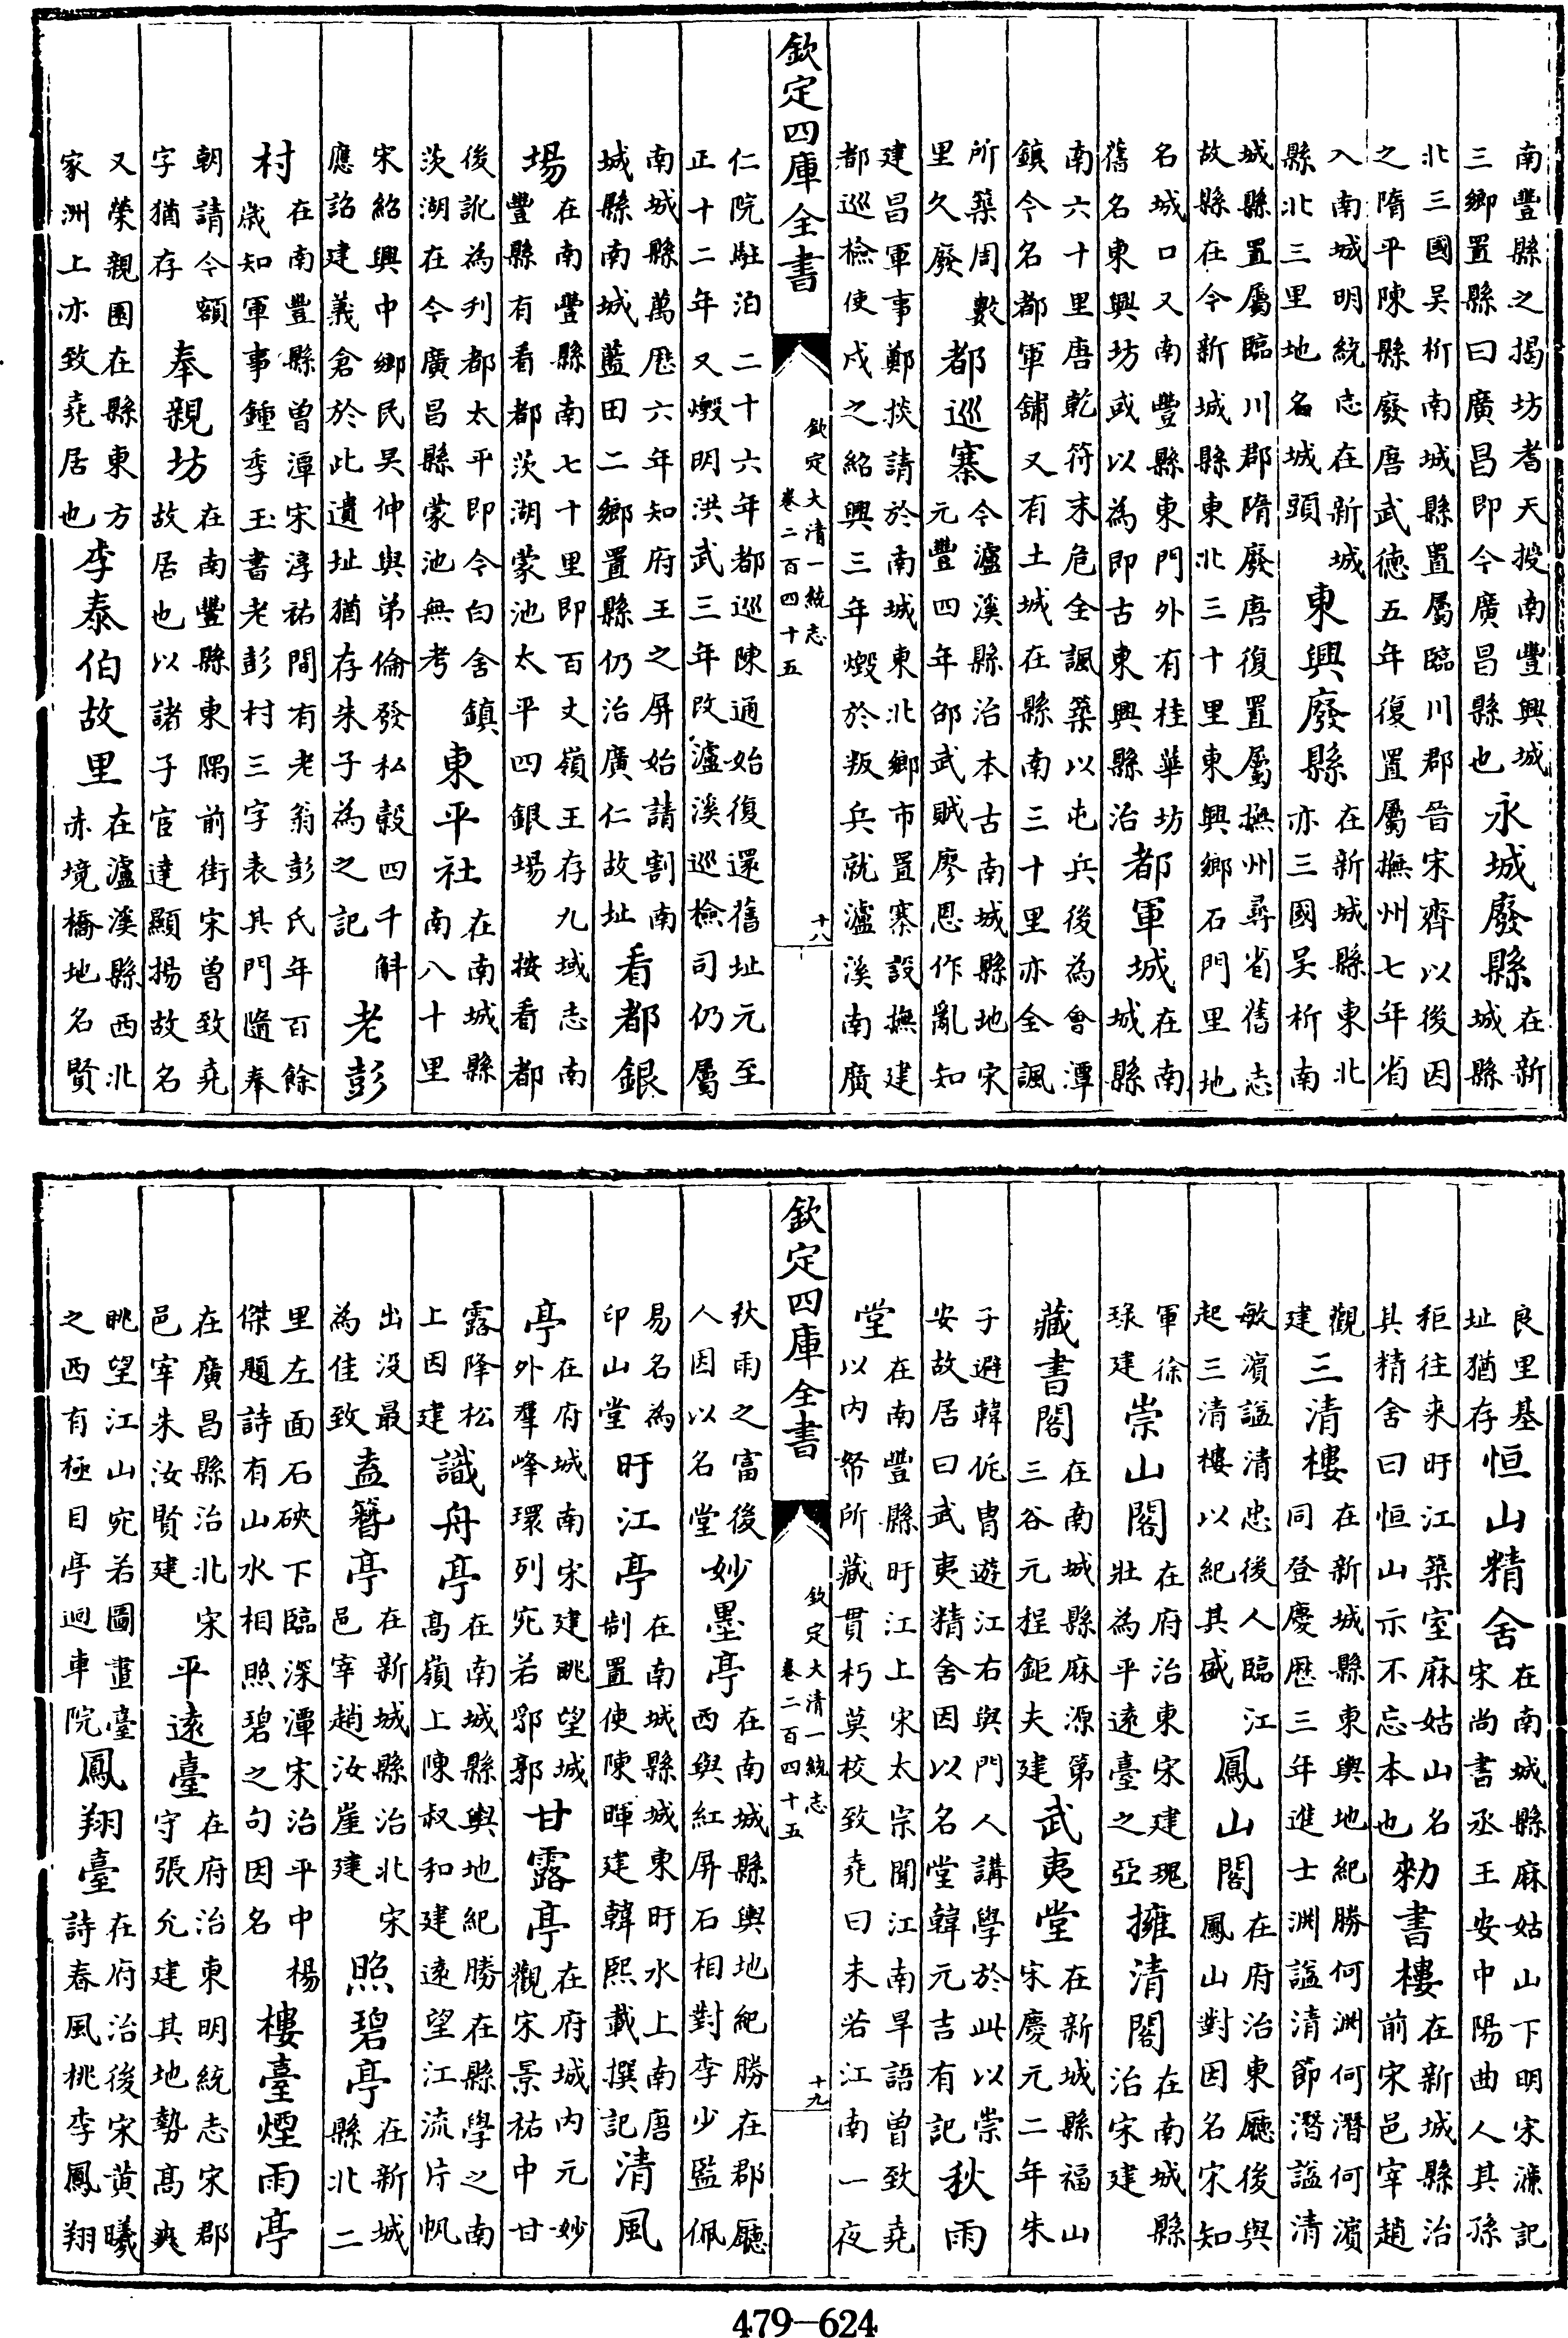 南豐縣之揭坊耆天授南豐興城三鄉置縣曰廣昌即今廣昌縣也永城廢縣在新城縣
北三國吳析南城縣置屬臨川郡晉宋齊以後因之隋平陳縣廢唐武德五年復置屬撫州七年省
入南城明統志在新城縣北三里地名城頭東興廢縣在新城縣東北亦三國吳析南
城縣置屬臨川郡隋廢唐復置屬撫州尋省舊志故縣在今新城縣東北三十里東興鄉石門里地
名城口又南豐縣東門外有桂華坊舊名東興坊或以為即古東興縣治都軍城在南城縣
南六十里唐乾符末危全諷築以屯兵後為會潭鎮今名都軍舖又有土城在縣南三十里亦全諷
所築周數里久廢都巡寨今瀘溪縣治本古南城縣地宋元豐四年邵武賊廖恩作亂知
建昌軍事鄭掞請於南城東北鄉市置寨設撫建都巡檢使戍之紹興三年燬於叛兵就瀘溪南廣
欽定四庫全書
欽定大清一統志
卷二百四十五
十八
仁院駐泊二十六年都巡陳通始復還舊址元至正十二年又燬明洪武三年改瀘溪巡檢司仍屬
南城縣萬厯六年知府王之屏始請割南城縣南城藍田二鄉置縣仍治廣仁故址看都銀
場在南豐縣南七十里即百丈嶺王存九域志南豐縣有看都茨湖蒙池太平四銀場按看都
後訛為刋都太平即今白舍鎮茨湖在今廣昌縣蒙池無考東平社在南城縣南八十里
宋紹興中鄉民吳伸與弟倫發私穀四千斛應詔建義倉於此遺址猶存朱子為之記老彭
村在南豐縣曾潭宋淳祐間有老翁彭氏年百餘歲知軍事鍾季玉書老彭村三字表其門隨奉
朝請令額字猶存奉親坊在南豐縣東隅前街宋曾致堯故居也以諸子宦達顯揚故名
又榮親園在縣東方家洲上亦致堯居也李泰伯故里在瀘溪縣西北赤境橋地名賢
良里基址猶存恒山精舍在南城縣麻姑山下明宋濂記宋尚書丞王安中陽曲人其孫
秬往来盱江築室麻姑山名其精舍曰恒山示不忘本也勑書樓在新城縣治前宋邑宰趙
觀建三清樓在新城縣東輿地紀勝何淵何潛何濵同登慶厯三年進士淵謚清節潛謚清
敏濵謚清忠後人臨江起三清樓以紀其盛鳳山閣在府治東廳後與鳳山對因名宋知
軍徐琭建崇山閣在府治東宋建瑰壯為平遠臺之亞擁清閣在南城縣治宋建
藏書閣在南城縣麻源第三谷元程鉅夫建武夷堂在新城縣福山宋慶元二年朱
子避韓侂胄遊江右與門人講學於此以崇安故居曰武夷精舍因以名堂韓元吉有記秋雨
堂在南豐縣盱江上宋太宗聞江南旱語曾致堯以内帑所藏貫朽莫校致堯曰未若江南一夜
欽定四庫全書
欽定大清一統志
卷二百四十五
十九
秋雨之富後人因以名堂妙墨亭在南城縣輿地紀勝在郡廳西與紅屏石相對李少監佩
易名為印山堂盱江亭在南城縣城東盱水上南唐制置使陳暉建韓熙載撰記清風
亭在府城南宋建眺望城外羣峰環列宛若郛郭甘露亭在府城内元妙觀宋景祐中甘
露降松上因建識舟亭在南城縣輿地紀勝在縣學之南高嶺上陳叔和建遠望江流片帆
出没最為佳致盍簪亭在新城縣治北宋邑宰趙汝崖建照碧亭在新城縣北二
里左面石硤下臨深潭宋治平中楊傑題詩有山水相照碧之句因名樓臺煙雨亭
在廣昌縣治北宋邑宰朱汝賢建平遠臺在府治東明統志宋郡守張允建其地勢高爽
眺望江山宛若圖畫臺之西有極目亭迴車院鳳翔臺在府治後宋黃曦詩春風桃李鳳翔
479—624